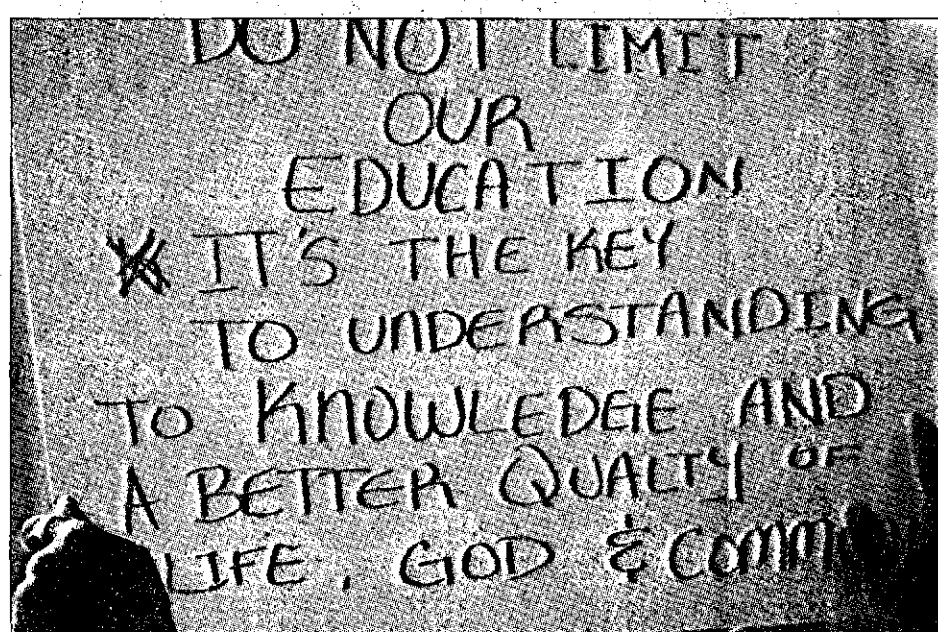 DO NOT LIMIT
OUR
EDUCATION
* IT'S THE KEY
TO UNDERSTANDING
TO KNOWLEDGE AND
A BETTER QUALTY OF
LIFE, GOD &